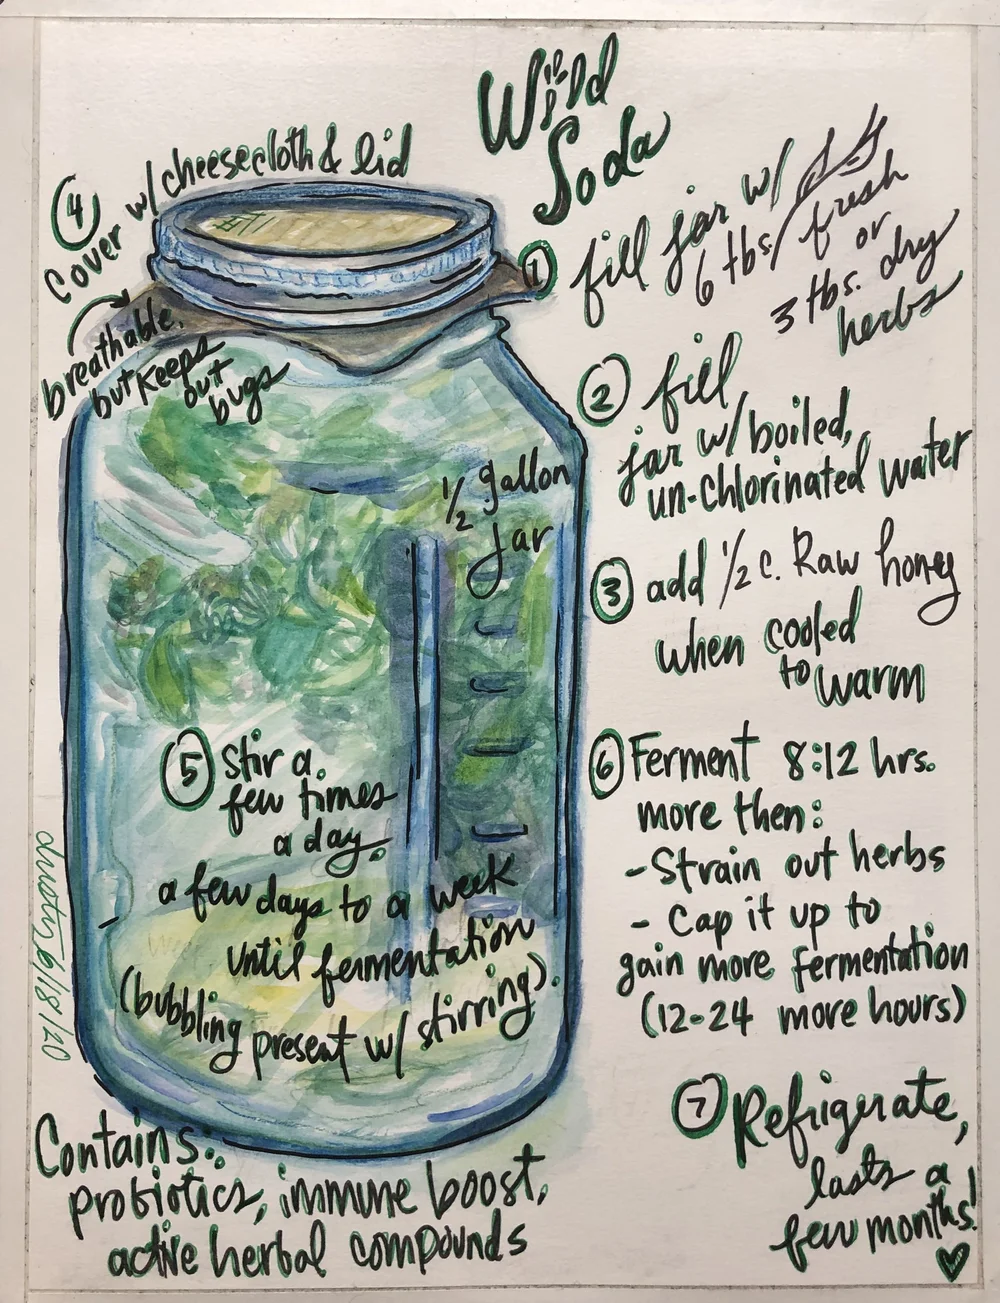 Wild
Soda
① fill jar w/
6 tbs/fresh
or
3 tbs. dry
herbs
② fill
jar w/boiled,
un-chlorinated water
③ add 1/2 c. Raw honey
when cooled
to warm
④ Cover w/cheesecloth & lid
breathable,
but keeps
out
bugs
1/2 gallon
jar
⑤ Stir a
few times
a day.
a few days to a week
until fermentation
(bubbling present w/ stirring).
⑥ Ferment 8:12 hrs.
more then:
- Strain out herbs
- Cap it up to
gain more fermentation
(12-24 more hours)
⑦ Refrigerate,
lasts a
few months!
Contains:
probiotics, immune boost,
active herbal compounds
6/18/20